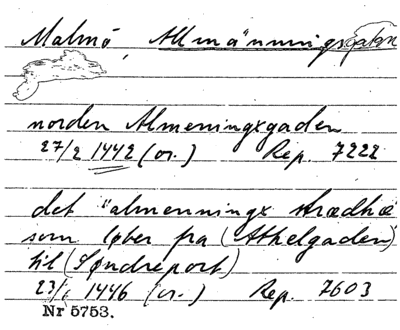 Malmö, Allmänningsgatan
norden Almeningxgaden
27/2 1442 (or.) Rep. 7222
det "almenningx strædhæ
som løber fra (Athelgaden)
til (Søndreport)
1446 (or.) Rep. 7603
Nr 5753.